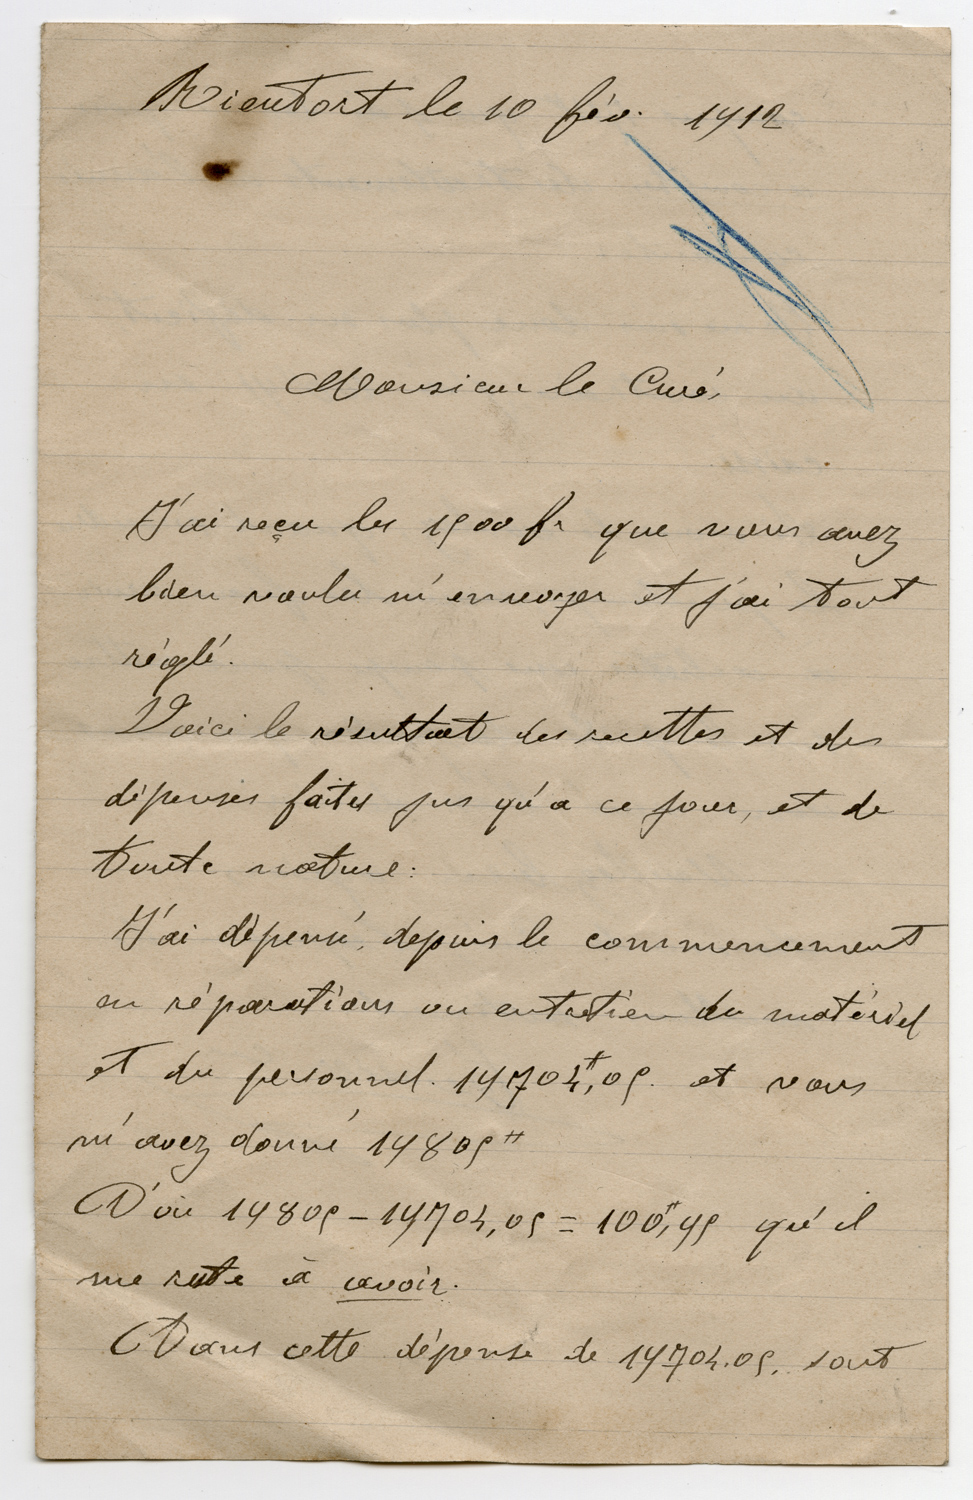 Rieutort le 10 fév. 1912
Monsieur le Curé,
J'ai reçu les 1500 fr que vous avez
bien voulu m'envoyer et j'ai tout
réglé.
Voici le résultat des recettes et des
dépenses faites jus qu'a ce jour, et de
toute nature:
J'ai dépensé, depuis le commencement
en réparations ou entretien du matériel
et du personnel. 19704f,05. et vous
m'avez donné 19805f
D'où 19805 – 19704,05 = 100f,95 qu'il
me reste à avoir.
Dans cette dépense de 19704.05. sont